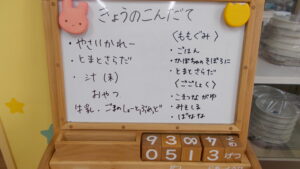 きょうのこんだて
・やさいカレー
・とまとさらだ
・汁（末）
おやつ
牛乳、ごまのしょーとぶれっど
〈ももぐみ〉
・ごはん
・かぼちゃのそぼろに
・とまとさらだ
〈ごごしょく〉
・こまつながゆ
・みそしる
・ばなな
9 3 8 4
0 5 1 3 げつ